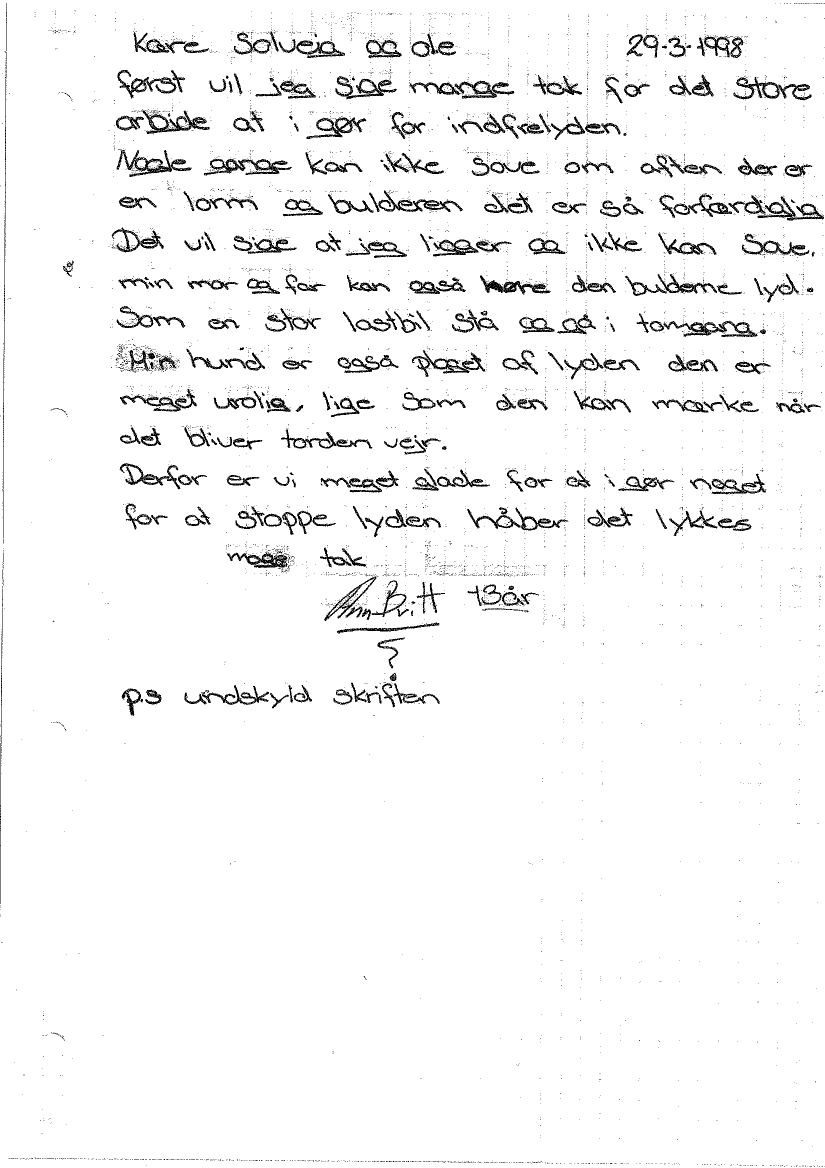 Kære Solveig og ole 29-3-1998
først vil jeg sige mange tak for det store
arbide at i gør for indfrelyden.
Nogle gange kan ikke Sove om aften der er
en larm og bulderen det er så forfærdiglig
Det vil sige at jeg ligger og ikke kan Sove.
min mor og far kan også høre den bulderne lyd.
Som en stor lastbil stå og gå i tomgang.
Min hund er også plaget af lyden den er
meget urolig, lige Som den kan mærke når
det bliver torden vejr.
Derfor er vi meget glade for at i gør noget
for at stoppe lyden håber det lykkes
mage tak
Ann-Britt 13år
p.s undskyld skriften